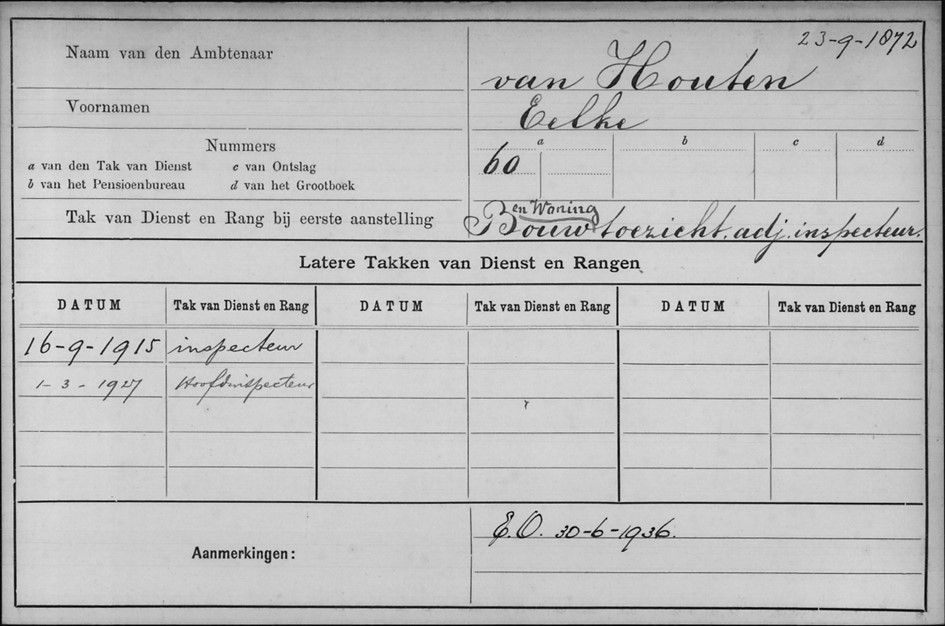 23-9-1872
Naam van den Ambtenaar van Houten
Voornamen Eelke
Nummers
a van den Tak van Dienst c van Ontslag
b van het Pensioenbureau d van het Grootboek
a b c d
60
en Woning
Tak van Dienst en Rang bij eerste aanstelling Bouwtoezicht. adj. inspecteur.
Latere Takken van Dienst en Rangen
DATUM Tak van Dienst en Rang DATUM Tak van Dienst en Rang DATUM Tak van Dienst en Rang
16-9-1915 inspecteur
1-3-1927 Hoofdinspecteur
Aanmerkingen: E.O. 30-6-1936.